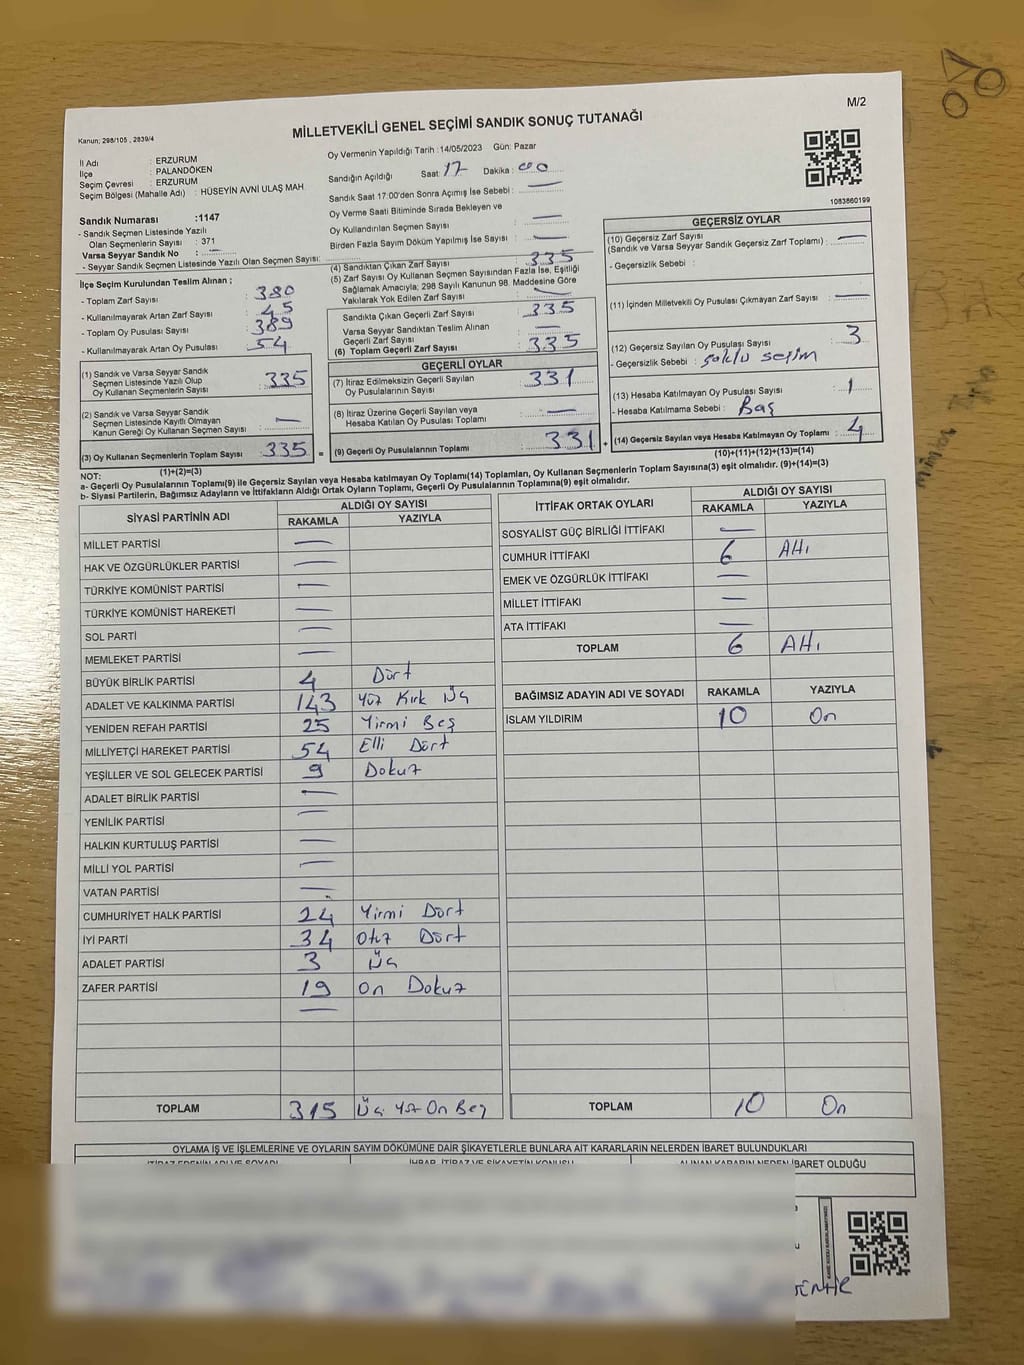 M/2
Kanun; 298/105 , 2839/4
MİLLETVEKİLİ GENEL SEÇİMİ SANDIK SONUÇ TUTANAĞI
İl Adı : ERZURUM
İlçe : PALANDÖKEN
Seçim Çevresi : ERZURUM
Seçim Bölgesi (Mahalle Adı) : HÜSEYİN AVNİ ULAŞ MAH.
Sandık Numarası :1147
- Sandık Seçmen Listesinde Yazılı
Olan Seçmenlerin Sayısı : 371
Varsa Seyyar Sandık No :
- Seyyar Sandık Seçmen Listesinde Yazılı Olan Seçmen Sayısı:
Oy Vermenin Yapıldığı Tarih :14/05/2023 Gün: Pazar
Sandığın Açıldığı Saat: 17 Dakika : 00
Sandık Saat 17:00'den Sonra Açımış İse Sebebi : —
Oy Verme Saati Bitiminde Sırada Bekleyen ve
Oy Kullandırılan Seçmen Sayısı —
Birden Fazla Sayım Döküm Yapılmış İse Sayısı : —
1083860199
İlçe Seçim Kurulundan Teslim Alınan ;
- Toplam Zarf Sayısı : 380
- Kullanılmayarak Artan Zarf Sayısı : 45
- Toplam Oy Pusulası Sayısı : 389
- Kullanılmayarak Artan Oy Pusulası : 54
(1) Sandık ve Varsa Seyyar Sandık
Seçmen Listesinde Yazılı Olup
Oy Kullanan Seçmenlerin Sayısı : 335
(2) Sandık ve Varsa Seyyar Sandık
Seçmen Listesinde Kayıtlı Olmayan
Kanun Gereği Oy Kullanan Seçmen Sayısı : —
(3) Oy Kullanan Seçmenlerin Toplam Sayısı : 335 =
(1)+(2)=(3)
(4) Sandıktan Çıkan Zarf Sayısı : 335
(5) Zarf Sayısı Oy Kullanan Seçmen Sayısından Fazla İse, Eşitliği
Sağlamak Amacıyla; 298 Sayılı Kanunun 98. Maddesine Göre
Yakılarak Yok Edilen Zarf Sayısı : —
Sandıkta Çıkan Geçerli Zarf Sayısı : 335
Varsa Seyyar Sandıktan Teslim Alınan
Geçerli Zarf Sayısı : —
(6) Toplam Geçerli Zarf Sayısı : 335
GEÇERLİ OYLAR
(7) İtiraz Edilmeksizin Geçerli Sayılan
Oy Pusulalarının Sayısı : 331
(8) İtiraz Üzerine Geçerli Sayılan veya
Hesaba Katılan Oy Pusulası Toplamı : —
(9) Geçerli Oy Pusulalarının Toplamı : 331 +
GEÇERSİZ OYLAR
(10) Geçersiz Zarf Sayısı
(Sandık ve Varsa Seyyar Sandık Geçersiz Zarf Toplamı) : —
- Geçersizlik Sebebi :
(11) İçinden Milletvekili Oy Pusulası Çıkmayan Zarf Sayısı : —
(12) Geçersiz Sayılan Oy Pusulası Sayısı : 3
- Geçersizlik Sebebi : çoklu seçim
(13) Hesaba Katılmayan Oy Pusulası Sayısı : 1
- Hesaba Katılmama Sebebi : Baş
(14) Geçersiz Sayılan veya Hesaba Katılmayan Oy Toplamı : 4
(10)+(11)+(12)+(13)=(14)
NOT:
a- Geçerli Oy Pusulalarının Toplamı(9) ile Geçersiz Sayılan veya Hesaba katılmayan Oy Toplamı(14) Toplamları, Oy Kullanan Seçmenlerin Toplam Sayısına(3) eşit olmalıdır. (9)+(14)=(3)
b- Siyasi Partilerin, Bağımsız Adayların ve İttifakların Aldığı Ortak Oyların Toplamı, Geçerli Oy Pusulalarının Toplamına(9) eşit olmalıdır.
SİYASİ PARTİNİN ADI ALDIĞI OY SAYISI
RAKAMLA YAZIYLA
MİLLET PARTİSİ —
HAK VE ÖZGÜRLÜKLER PARTİSİ —
TÜRKİYE KOMÜNİST PARTİSİ —
TÜRKİYE KOMÜNİST HAREKETİ —
SOL PARTİ —
MEMLEKET PARTİSİ —
BÜYÜK BİRLİK PARTİSİ 4 Dört
ADALET VE KALKINMA PARTİSİ 143 Yüz Kırk Üç
YENİDEN REFAH PARTİSİ 25 Yirmi Beş
MİLLİYETÇİ HAREKET PARTİSİ 54 Elli Dört
YEŞİLLER VE SOL GELECEK PARTİSİ 9 Dokuz
ADALET BİRLİK PARTİSİ —
YENİLİK PARTİSİ —
HALKIN KURTULUŞ PARTİSİ —
MİLLİ YOL PARTİSİ —
VATAN PARTİSİ —
CUMHURİYET HALK PARTİSİ 24 Yirmi Dört
İYİ PARTİ 34 Otuz Dört
ADALET PARTİSİ 3 Üç
ZAFER PARTİSİ 19 On Dokuz
—
TOPLAM 315 Üç Yüz On Beş
İTTİFAK ORTAK OYLARI ALDIĞI OY SAYISI
RAKAMLA YAZIYLA
SOSYALİST GÜÇ BİRLİĞİ İTTİFAKI —
CUMHUR İTTİFAKI 6 Altı
EMEK VE ÖZGÜRLÜK İTTİFAKI —
MİLLET İTTİFAKI —
ATA İTTİFAKI —
TOPLAM 6 Altı
BAĞIMSIZ ADAYIN ADI VE SOYADI RAKAMLA YAZIYLA
İSLAM YILDIRIM 10 On
TOPLAM 10 On
OYLAMA İŞ VE İŞLEMLERİNE VE OYLARIN SAYIM DÖKÜMÜNE DAİR ŞİKAYETLERLE BUNLARA AİT KARARLARIN NELERDEN İBARET BULUNDUKLARI
İTİRAZ EDENİN ADI VE SOYADI İHBAR, İTİRAZ VE ŞİKAYETİN KONUSU ALINAN KARARIN NEDEN İBARET OLDUĞU